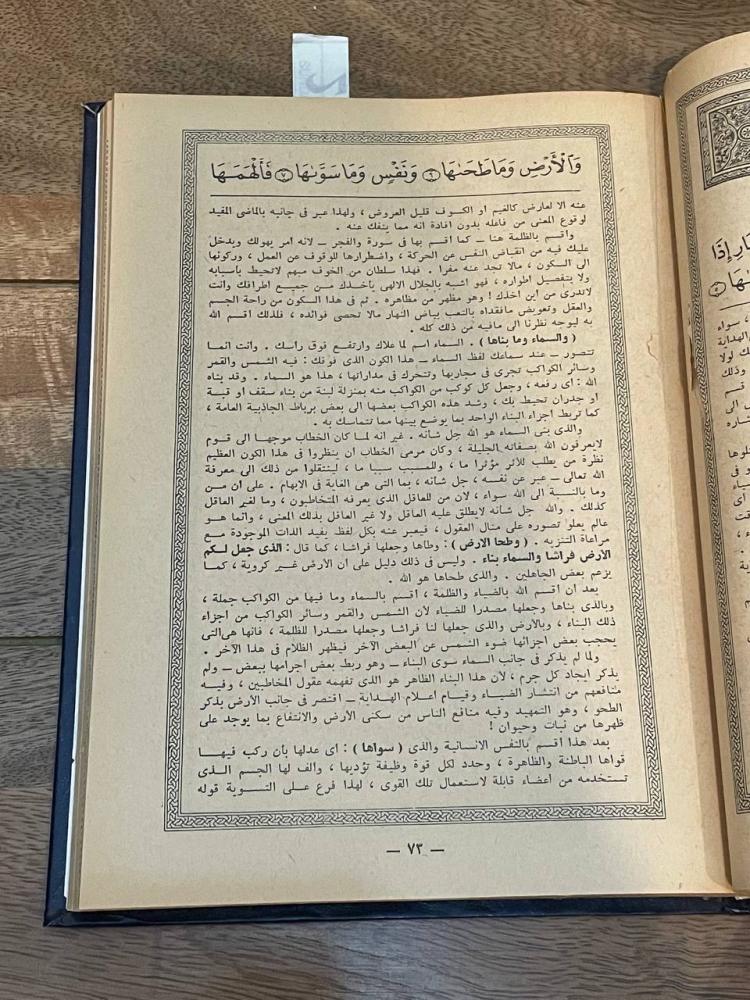 وَالْأَرْضِ وَمَا طَحَىٰهَا ٦ وَنَفْسٍ وَمَا سَوَّىٰهَا ٧ فَأَلْهَمَهَا
عنه الا لعارض كالغيم او الكسوف قليل العروض ، ولهذا عبر فى جانبه بالماضى المفيد
لوقوع المعنى من فاعله بدون افادة انه مما ينفك عنه .
واقسم بالظلمة هنا ــ كما اقسم بها فى سورة والفجر ــ لانه امر يهولك ويدخل
عليك فيه من انقباض النفس عن الحركة ، واضطرارها للوقوف عن العمل ، وركونها
الى السكون ، مالا تجد عنه مفرا . فهذا سلطان من الخوف مبهم لاتحيط بأسبابه
ولا بتفصيل اطواره ، فهو اشبه بالجلال الالهى يأخذك من جميع اطرافك وانت
لاتدرى من اين اخذك ! وهو مظهر من مظاهره . ثم فى هذا السكون من راحة الجسم
والعقل وتعويض مافقداه بالتعب بياض النهار مالا تحصى فوائده ، فلذلك اقسم الله
به ليوجه نظرنا الى مافيه من ذلك كله .
( والسماء وما بناها ) . السماء اسم لما علاك وارتفع فوق راسك . وانت انما
تتصور ــ عند سماعك لفظ السماء ــ هذا الكون الذى فوقك : فيه الشمس والقمر
وسائر الكواكب تجرى فى مجاريها وتتحرك فى مداراتها ، هذا هو السماء . وقد بناه
الله : اى رفعه ، وجعل كل كوكب من الكواكب منه بمنزلة لبنة من بناء سقف او قبة
او جدران تحيط بك ، وشد هذه الكواكب بعضها الى بعض برباط الجاذبية العامة ،
كما تربط اجزاء البناء الواحد بما يوضع بينها مما تتماسك به .
والذى بنى السماء هو الله جل شانه . غير انه لما كان الخطاب موجها الى قوم
لايعرفون الله بصفاته الجليلة ، وكان مرمى الخطاب ان ينظروا فى هذا الكون العظيم
نظرة من يطلب للأثر مؤثرا ما ، وللمسبب سببا ما ، لينتقلوا من ذلك الى معرفة
الله تعالى ــ عبر عن نفسه ، جل شأنه ، بما التى هى الغاية فى الابهام . على ان من
وما بالنسبة الى الله سواء ، لان من للعاقل الذى يعرفه المتخاطبون ، وما لغير العاقل
كذلك . والله جل شانه لايطلق عليه العاقل ولا غير العاقل بذلك المعنى ، وانما هو
عالم يعلو تصوره على منال العقول ، فيعبر عنه بكل لفظ يفيد الذات الموجودة مع
مراعاة التنزيه . ( وطحا الارض ) : وطاها وجعلها فراشا ، كما قال : الذى جعل لكم
الأرض فراشا والسماء بناء . وليس فى ذلك دليل على ان الأرض غير كروية ، كما
يزعم بعض الجاهلين . والذى طحاها هو الله .
بعد ان اقسم الله بالضياء والظلمة ، أقسم بالسماء وما فيها من الكواكب جملة ،
وبالذى بناها وجعلها مصدرا للضياء لأن الشمس والقمر وسائر الكواكب من اجزاء
ذلك البناء ، وبالأرض والذى جعلها لنا فراشا وجعلها مصدرا للظلمة ، فانها هى التى
يحجب بعض اجزائها ضوء الشمس عن البعض الآخر فيظهر الظلام فى هذا الآخر .
ولما لم يذكر فى جانب السماء سوى البناء ــ وهو ربط بعض اجرامها ببعض ــ ولم
يذكر ايجاد كل جرم ، لأن هذا البناء الظاهر هو الذى تفهمه عقول المخاطبين ، وفيه
منافعهم من انتشار الضياء وقيام اعلام الهداية ــ اقتصر فى جانب الأرض بذكر
الطحو ، وهو التمهيد وفيه منافع الناس من سكنى الأرض والانتفاع بما يوجد على
ظهرها من نبات وحيوان !
بعد هذا أقسم بالنفس الانسانية والذى ( سواها ) : اى عدلها بأن ركب فيها
قواها الباطنة والظاهرة ، وحدد لكل قوة وظيفة تؤديها ، والف لها الجسم الذى
تستخدمه من أعضاء قابلة لاستعمال تلك القوى ، لهذا فرع على التسوية قوله
— ٧٣ —